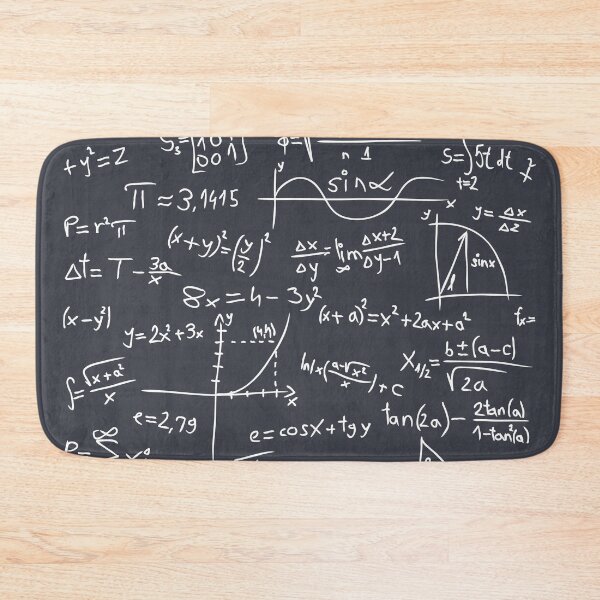 +y²=Z
S₃=[1 0 1
0 0 1]
φ=√
n 1
S=∫5t dt
t=2
π≈3,1415
y
sinα
x
y=Δx/Δz
P=r²π
(x+y)²=(y/2)²
Δx/Δy=lim ∞ Δx+2/Δy-1
y
1
sinx
Δt=T-3a/x
8x=h-3y²
(x-y²)
y=2x²+3x
y
(4,4)
x
(x+a)²=x²+2ax+a²
fx=
ln|x(a-√x²/x)+c
X₁/₂=b±(a-c)/√2a
∫=√x+a²/x
e=2,79
e=cosx+tgy
tan(2a)-2tan(a)/1-tan²(a)
P=∞